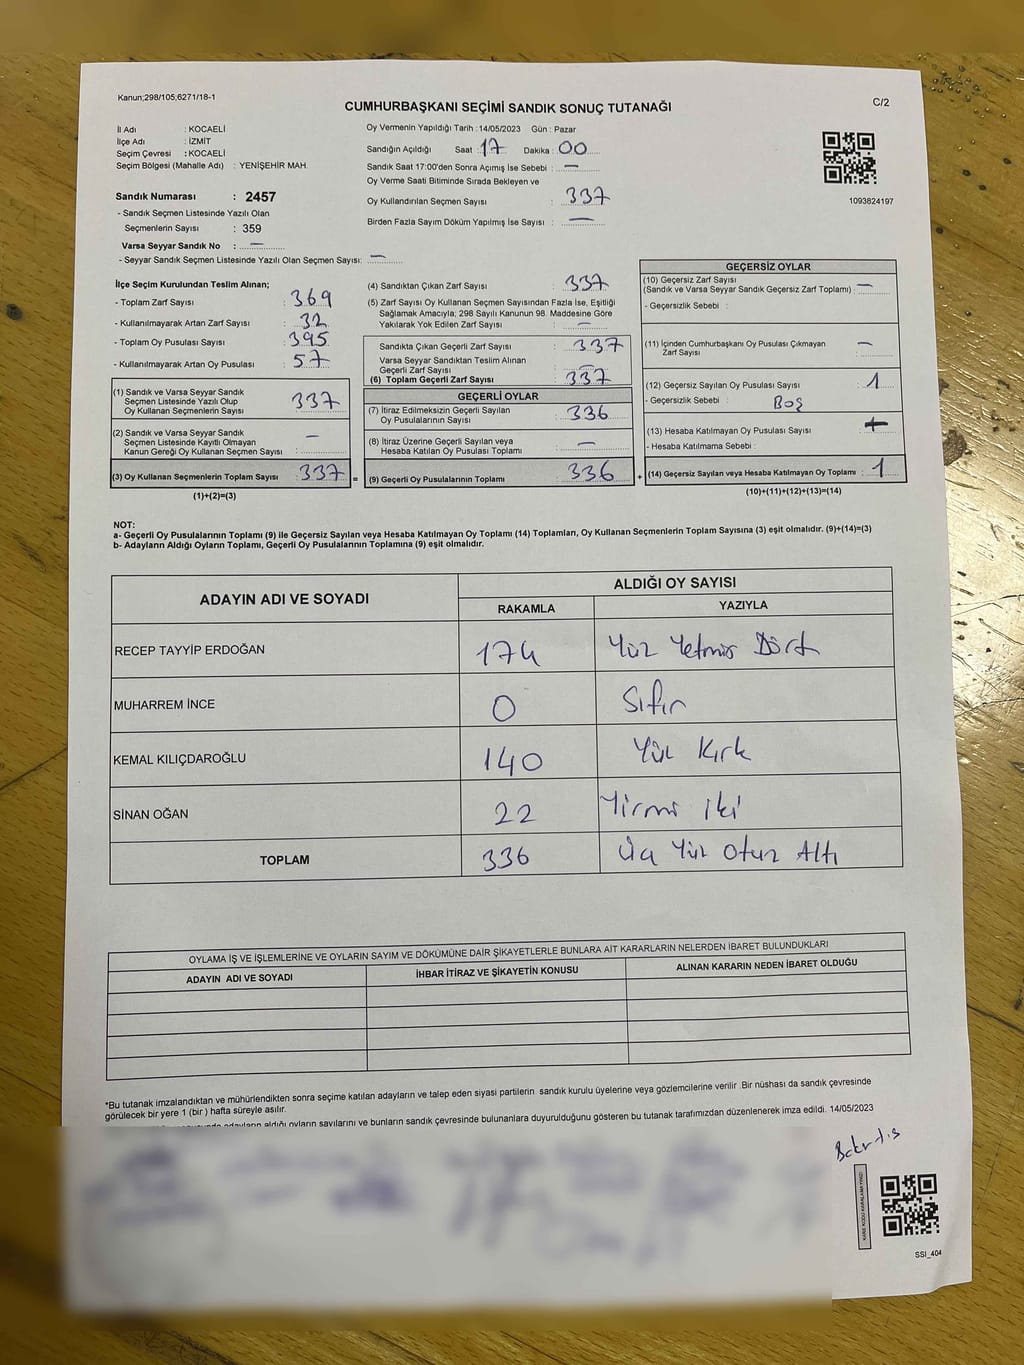 Kanun;298/105;6271/18-1
CUMHURBAŞKANI SEÇİMİ SANDIK SONUÇ TUTANAĞI
C/2
İl Adı : KOCAELİ
İlçe Adı : İZMİT
Seçim Çevresi : KOCAELİ
Seçim Bölgesi (Mahalle Adı) : YENİŞEHİR MAH.
Sandık Numarası : 2457
- Sandık Seçmen Listesinde Yazılı Olan
Seçmenlerin Sayısı : 359
Varsa Seyyar Sandık No : —
- Seyyar Sandık Seçmen Listesinde Yazılı Olan Seçmen Sayısı: —
Oy Vermenin Yapıldığı Tarih : 14/05/2023 Gün : Pazar
Sandığın Açıldığı Saat 17 Dakika : 00
Sandık Saat 17:00'den Sonra Açımış İse Sebebi : —
Oy Verme Saati Bitiminde Sırada Bekleyen ve
Oy Kullandırılan Seçmen Sayısı : 337
Birden Fazla Sayım Döküm Yapılmış İse Sayısı : —
1093824197
İlçe Seçim Kurulundan Teslim Alınan;
- Toplam Zarf Sayısı : 369
- Kullanılmayarak Artan Zarf Sayısı : 32
- Toplam Oy Pusulası Sayısı : 395
- Kullanılmayarak Artan Oy Pusulası : 57
(1) Sandık ve Varsa Seyyar Sandık
Seçmen Listesinde Yazılı Olup
Oy Kullanan Seçmenlerin Sayısı : 337
(2) Sandık ve Varsa Seyyar Sandık
Seçmen Listesinde Kayıtlı Olmayan
Kanun Gereği Oy Kullanan Seçmen Sayısı : —
(3) Oy Kullanan Seçmenlerin Toplam Sayısı : 337 =
(1)+(2)=(3)
(4) Sandıktan Çıkan Zarf Sayısı : 337
(5) Zarf Sayısı Oy Kullanan Seçmen Sayısından Fazla İse, Eşitliği
Sağlamak Amacıyla; 298 Sayılı Kanunun 98. Maddesine Göre
Yakılarak Yok Edilen Zarf Sayısı : —
Sandıkta Çıkan Geçerli Zarf Sayısı : 337
Varsa Seyyar Sandıktan Teslim Alınan
Geçerli Zarf Sayısı : —
(6) Toplam Geçerli Zarf Sayısı : 337
GEÇERLİ OYLAR
(7) İtiraz Edilmeksizin Geçerli Sayılan
Oy Pusulalarının Sayısı : 336
(8) İtiraz Üzerine Geçerli Sayılan veya
Hesaba Katılan Oy Pusulası Toplamı : —
(9) Geçerli Oy Pusulalarının Toplamı : 336 +
GEÇERSİZ OYLAR
(10) Geçersiz Zarf Sayısı
(Sandık ve Varsa Seyyar Sandık Geçersiz Zarf Toplamı) : —
- Geçersizlik Sebebi :
(11) İçinden Cumhurbaşkanı Oy Pusulası Çıkmayan
Zarf Sayısı : —
(12) Geçersiz Sayılan Oy Pusulası Sayısı : 1
- Geçersizlik Sebebi : Boş
(13) Hesaba Katılmayan Oy Pusulası Sayısı :
- Hesaba Katılmama Sebebi :
(14) Geçersiz Sayılan veya Hesaba Katılmayan Oy Toplamı : 1
(10)+(11)+(12)+(13)=(14)
NOT:
a- Geçerli Oy Pusulalarının Toplamı (9) ile Geçersiz Sayılan veya Hesaba Katılmayan Oy Toplamı (14) Toplamları, Oy Kullanan Seçmenlerin Toplam Sayısına (3) eşit olmalıdır. (9)+(14)=(3)
b- Adayların Aldığı Oyların Toplamı, Geçerli Oy Pusulalarının Toplamına (9) eşit olmalıdır.
ADAYIN ADI VE SOYADI
ALDIĞI OY SAYISI
RAKAMLA YAZIYLA
RECEP TAYYİP ERDOĞAN 174 Yüz Yetmiş Dört
MUHARREM İNCE 0 Sıfır
KEMAL KILIÇDAROĞLU 140 Yüz Kırk
SİNAN OĞAN 22 Yirmi iki
TOPLAM 336 Üç Yüz Otuz Altı
OYLAMA İŞ VE İŞLEMLERİNE VE OYLARIN SAYIM VE DÖKÜMÜNE DAİR ŞİKAYETLERLE BUNLARA AİT KARARLARIN NELERDEN İBARET BULUNDUKLARI
ADAYIN ADI VE SOYADI İHBAR İTİRAZ VE ŞİKAYETİN KONUSU ALINAN KARARIN NEDEN İBARET OLDUĞU
*Bu tutanak imzalandıktan ve mühürlendikten sonra seçime katılan adayların ve talep eden siyasi partilerin sandık kurulu üyelerine veya gözlemcilerine verilir .Bir nüshası da sandık çevresinde
görülecek bir yere 1 (bir ) hafta süreyle asılır.
adayların aldığı oyların sayılarını ve bunların sandık çevresinde bulunanlara duyurulduğunu gösteren bu tutanak tarafımızdan düzenlenerek imza edildi. 14/05/2023
KARE KODU KARALAMAYINIZ!
SSI_404